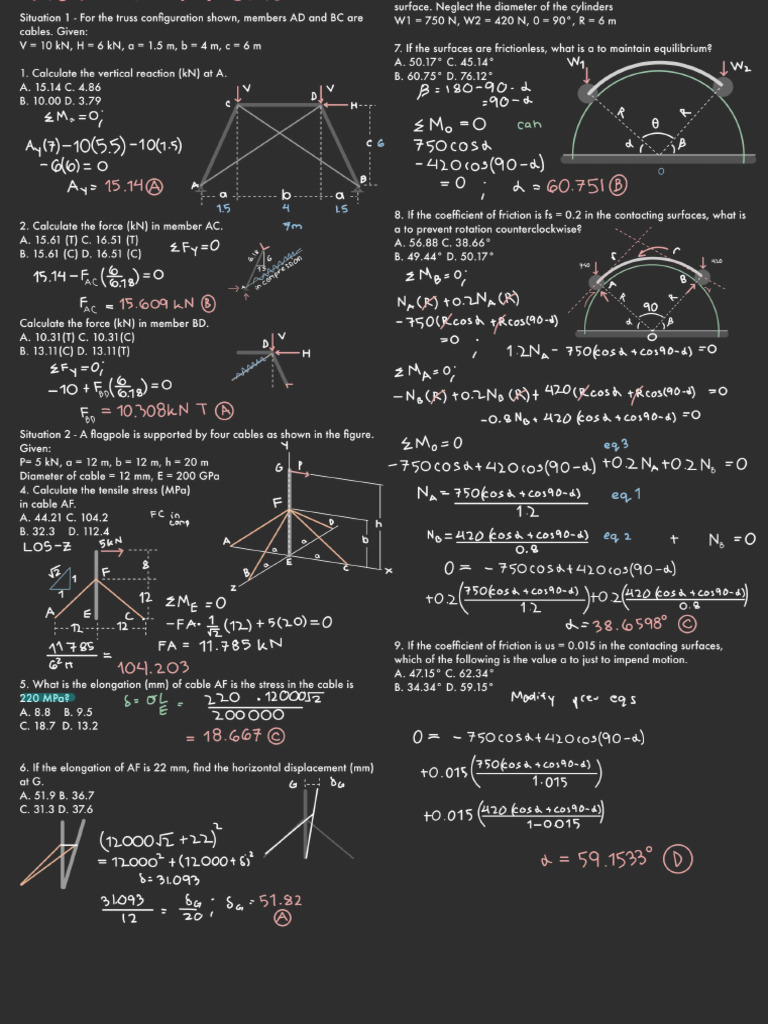 Situation 1 - For the truss configuration shown, members AD and BC are
cables. Given:
V = 10 kN, H = 6 kN, a = 1.5 m, b = 4 m, c = 6 m
1. Calculate the vertical reaction (kN) at A.
A. 15.14 C. 4.86
B. 10.00 D. 3.79
ΣM₀=0;
Ay(7)-10(5.5)-10(1.5)
-6(6)=0
Ay= 15.14 Ⓐ
V
V
C
D
H
c 6
A
B
a
b
a
1.5
4
1.5
7m
2. Calculate the force (kN) in member AC.
A. 15.61 (T) C. 16.51 (T)
B. 15.61 (C) D. 16.51 (C)
ΣFy=0
15.14-F_AC(6/6.18)=0
F_AC = 15.609 kN Ⓑ
6.18
6
1.5
A
in compression
Calculate the force (kN) in member BD.
A. 10.31(T) C. 10.31(C)
B. 13.11(C) D. 13.11(T)
ΣFy=0;
-10+F_BD(6/6.18)=0
F_BD = 10.308kN T Ⓐ
D
V
H
Situation 2 - A flagpole is supported by four cables as shown in the figure.
Given:
P= 5 kN, a = 12 m, b = 12 m, h = 20 m
Diameter of cable = 12 mm, E = 200 GPa
4. Calculate the tensile stress (MPa)
in cable AF.
A. 44.21 C. 104.2
B. 32.3 D. 112.4
FC in
comp
LOS-Z
5kN
8
F
√2
1
1
12
A
E
C
12
12
Y
G
P
F
h
D
b
A
a
a
E
a
a
B
C
X
Z
ΣM_E=0
-FA·1/√2(12)+5(20)=0
FA = 11.785 kN
11785/6²π = 104.203
5. What is the elongation (mm) of cable AF is the stress in the cable is
220 MPa?
A. 8.8 B. 9.5
C. 18.7 D. 13.2
δ= σL/E = 220·12000√2/200000
= 18.667 Ⓒ
6. If the elongation of AF is 22 mm, find the horizontal displacement (mm)
at G.
A. 51.9 B. 36.7
C. 31.3 D. 37.6
G
δG
(12000√2+22)²
=12000²+(12000+δ)²
δ=31.093
31.093/12 = δG/20; δG = 51.82
Ⓐ
surface. Neglect the diameter of the cylinders
W1 = 750 N, W2 = 420 N, 0 = 90°, R = 6 m
7. If the surfaces are frictionless, what is a to maintain equilibrium?
A. 50.17° C. 45.14°
B. 60.75° D. 76.12°
β=180-90-α
=90-α
ΣM₀=0 can
750cosα
-420cos(90-α)
=0 ; α= 60.751 Ⓑ
W1
W2
R
R
θ
α
β
0
8. If the coefficient of friction is fs = 0.2 in the contacting surfaces, what is
a to prevent rotation counterclockwise?
A. 56.88 C. 38.66°
B. 49.44° D. 50.17°
ΣM_B=0;
N_A(R)+0.2N_A(R)
-750(Rcosα+Rcos(90-α)
=0 ; 1.2N_A-750(cosα+cos90-α)=0
750
f
r
420
A
B
R
R
90
α
β
O
ΣM_A=0;
-N_B(R)+0.2N_B(R)+420(Rcosα+Rcos(90-α) =0
-0.8N_B+420(cosα+cos90-α)=0
ΣM₀=0 eq3
-750cosα+420cos(90-α)+0.2N_A+0.2N_B=0
N_A=750(cosα+cos90-α)/1.2 eq1
N_B=420(cosα+cos90-α)/0.8 eq2 + N_B=0
0= -750cosα+420cos(90-α)
+0.2(750(cosα+cos90-α)/1.2)+0.2(420(cosα+cos90-α)/0.8
α=38.6598° Ⓒ
9. If the coefficient of friction is us = 0.015 in the contacting surfaces,
which of the following is the value a to just to impend motion.
A. 47.15° C. 62.34°
B. 34.34° D. 59.15°
Modify prev eqs
0= -750cosα+420cos(90-α)
+0.015(750(cosα+cos90-α)/1.015)
+0.015(420(cosα+cos90-α)/1-0.015)
α= 59.1533° Ⓓ